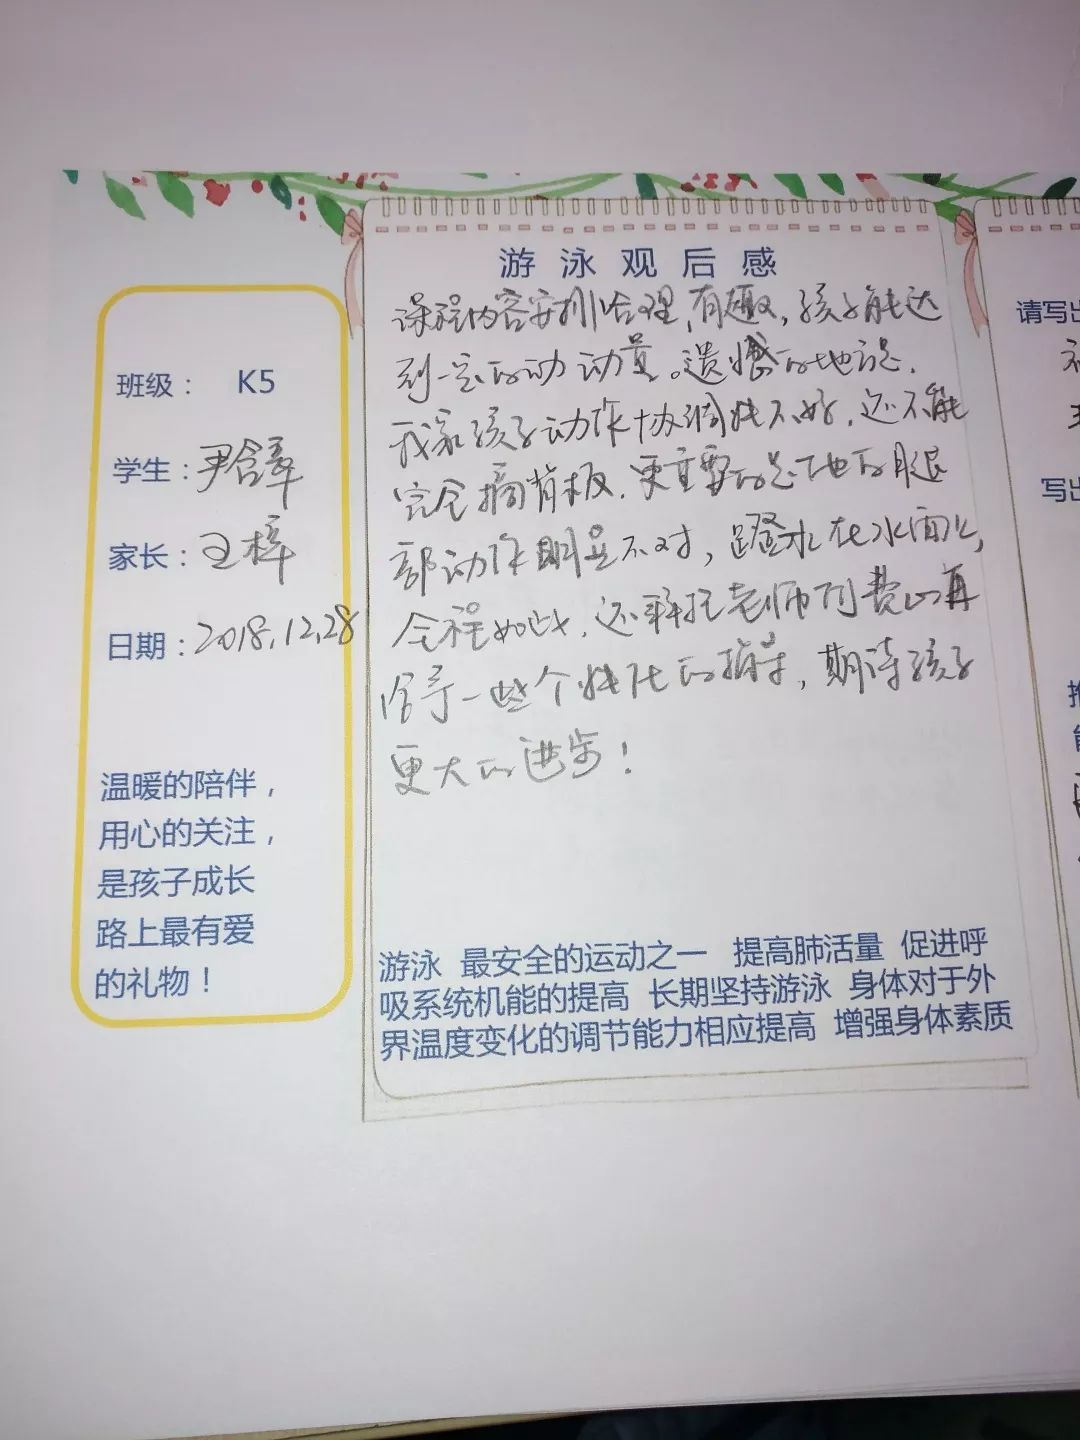 班级： K5
学生：尹含章
家长：王梓
日期：2018.12.28
温暖的陪伴，
用心的关注，
是孩子成长
路上最有爱
的礼物！
游泳观后感
课程内容安排合理，有趣，孩子能达
到一定的动动量。遗憾的地方是，
我家孩子动作协调性不好，还不能
完全摘背板，更重要的是她的腿
部动作明显不对，蹬水在水面上，
全程如此，还拜托老师付费心再
给予一些个性化的指导，期待孩子
更大的进步！
游泳 最安全的运动之一 提高肺活量 促进呼
吸系统机能的提高 长期坚持游泳 身体对于外
界温度变化的调节能力相应提高 增强身体素质
请写出
写出